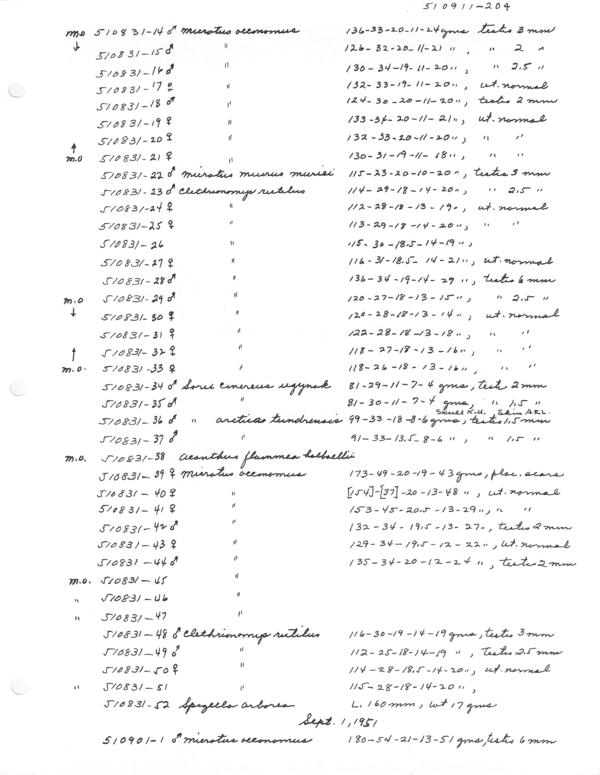 510911-204
m.o 510831-14 ♂ microtus oeconomus 136-33-20-11-24 gms testes 3 mm
↓ 510831-15 ♂ " 126-32-20-11-21 ", " 2 "
510831-16 ♂ " 130-34-19-11-20 ", " 2.5 "
510831-17 ♀ " 132-33-19-11-20 ", ut. normal
510831-18 ♂ " 124-30-20-11-20 ", testes 2 mm
510831-19 ♀ " 133-34-20-11-21 ", ut. normal
510831-20 ♀ " 132-33-20-11-20 ", " "
↑ m.o 510831-21 ♀ " 130-31-19-11-18 ", " "
510831-22 ♂ microtus miurus muriei 115-23-20-10-20 ", testes 3 mm
510831-23 ♂ clethrionomys rutilus 114-29-18-14-20 ", " 2.5 "
510831-24 ♀ " 112-28-18-13-19 ", ut. normal
510831-25 ♀ " 113-29-18-14-20 ", " "
510831-26 " 115-30-18.5-14-19 ",
510831-27 ♀ " 116-31-18.5-14-21 ", ut. normal
510831-28 ♂ " 136-34-19-14-29 ", testes 6 mm
m.o 510831-29 ♂ " 120-27-18-13-15 ", " 2.5 "
↓ 510831-30 ♀ " 120-28-18-13-14 ", ut. normal
510831-31 ♀ " 122-28-18-13-18 ", " "
↑ 510831-32 ♀ " 118-27-18-13-16 ", " "
m.o. 510831-33 ♀ " 118-26-18-13-16 ", " "
510831-34 ♂ Sorex cinereus ugyunak 81-29-11-7-4 gms, test 2 mm
510831-35 ♂ " 81-30-11-7-4 gms, " 1.5 "
Skull K.U. Skin AKL.
510831-36 ♂ " arcticus tundrensis 99-33-18-8-6 gms, testes 1.5 mm
510831-37 ♂ " 91-33-13.5-8-6 ", " 1.5 "
m.o. 510831-38 acanthus flammea holboellii
510831-39 ♀ microtus oeconomus 173-49-20-19-43 gms, plac. scars
510831-40 ♀ " [154]-[37]-20-13-48 ", ut. normal
510831-41 ♀ " 153-45-20.5-13-29 ", " "
510831-42 ♂ " 132-34-19.5-13-27 ", testes 2 mm
510831-43 ♀ " 129-34-19.5-12-22 ", ut. normal
510831-44 ♂ " 135-34-20-12-24 ", testes 2 mm
m.o. 510831-45 "
" 510831-46 "
" 510831-47 "
510831-48 ♂ clethrionomys rutilus 116-30-19-14-19 gms, testes 3 mm
510831-49 ♂ " 112-25-18-14-19 ", testes 2.5 mm
510831-50 ♀ " 114-28-18.5-14-20 ", ut. normal
" 510831-51 " 115-28-18-14-20 ",
510831-52 Spizella arborea L. 160 mm, wt 17 gms
Sept. 1, 1951
510901-1 ♂ microtus oeconomus 180-54-21-13-51 gms, testes 6 mm